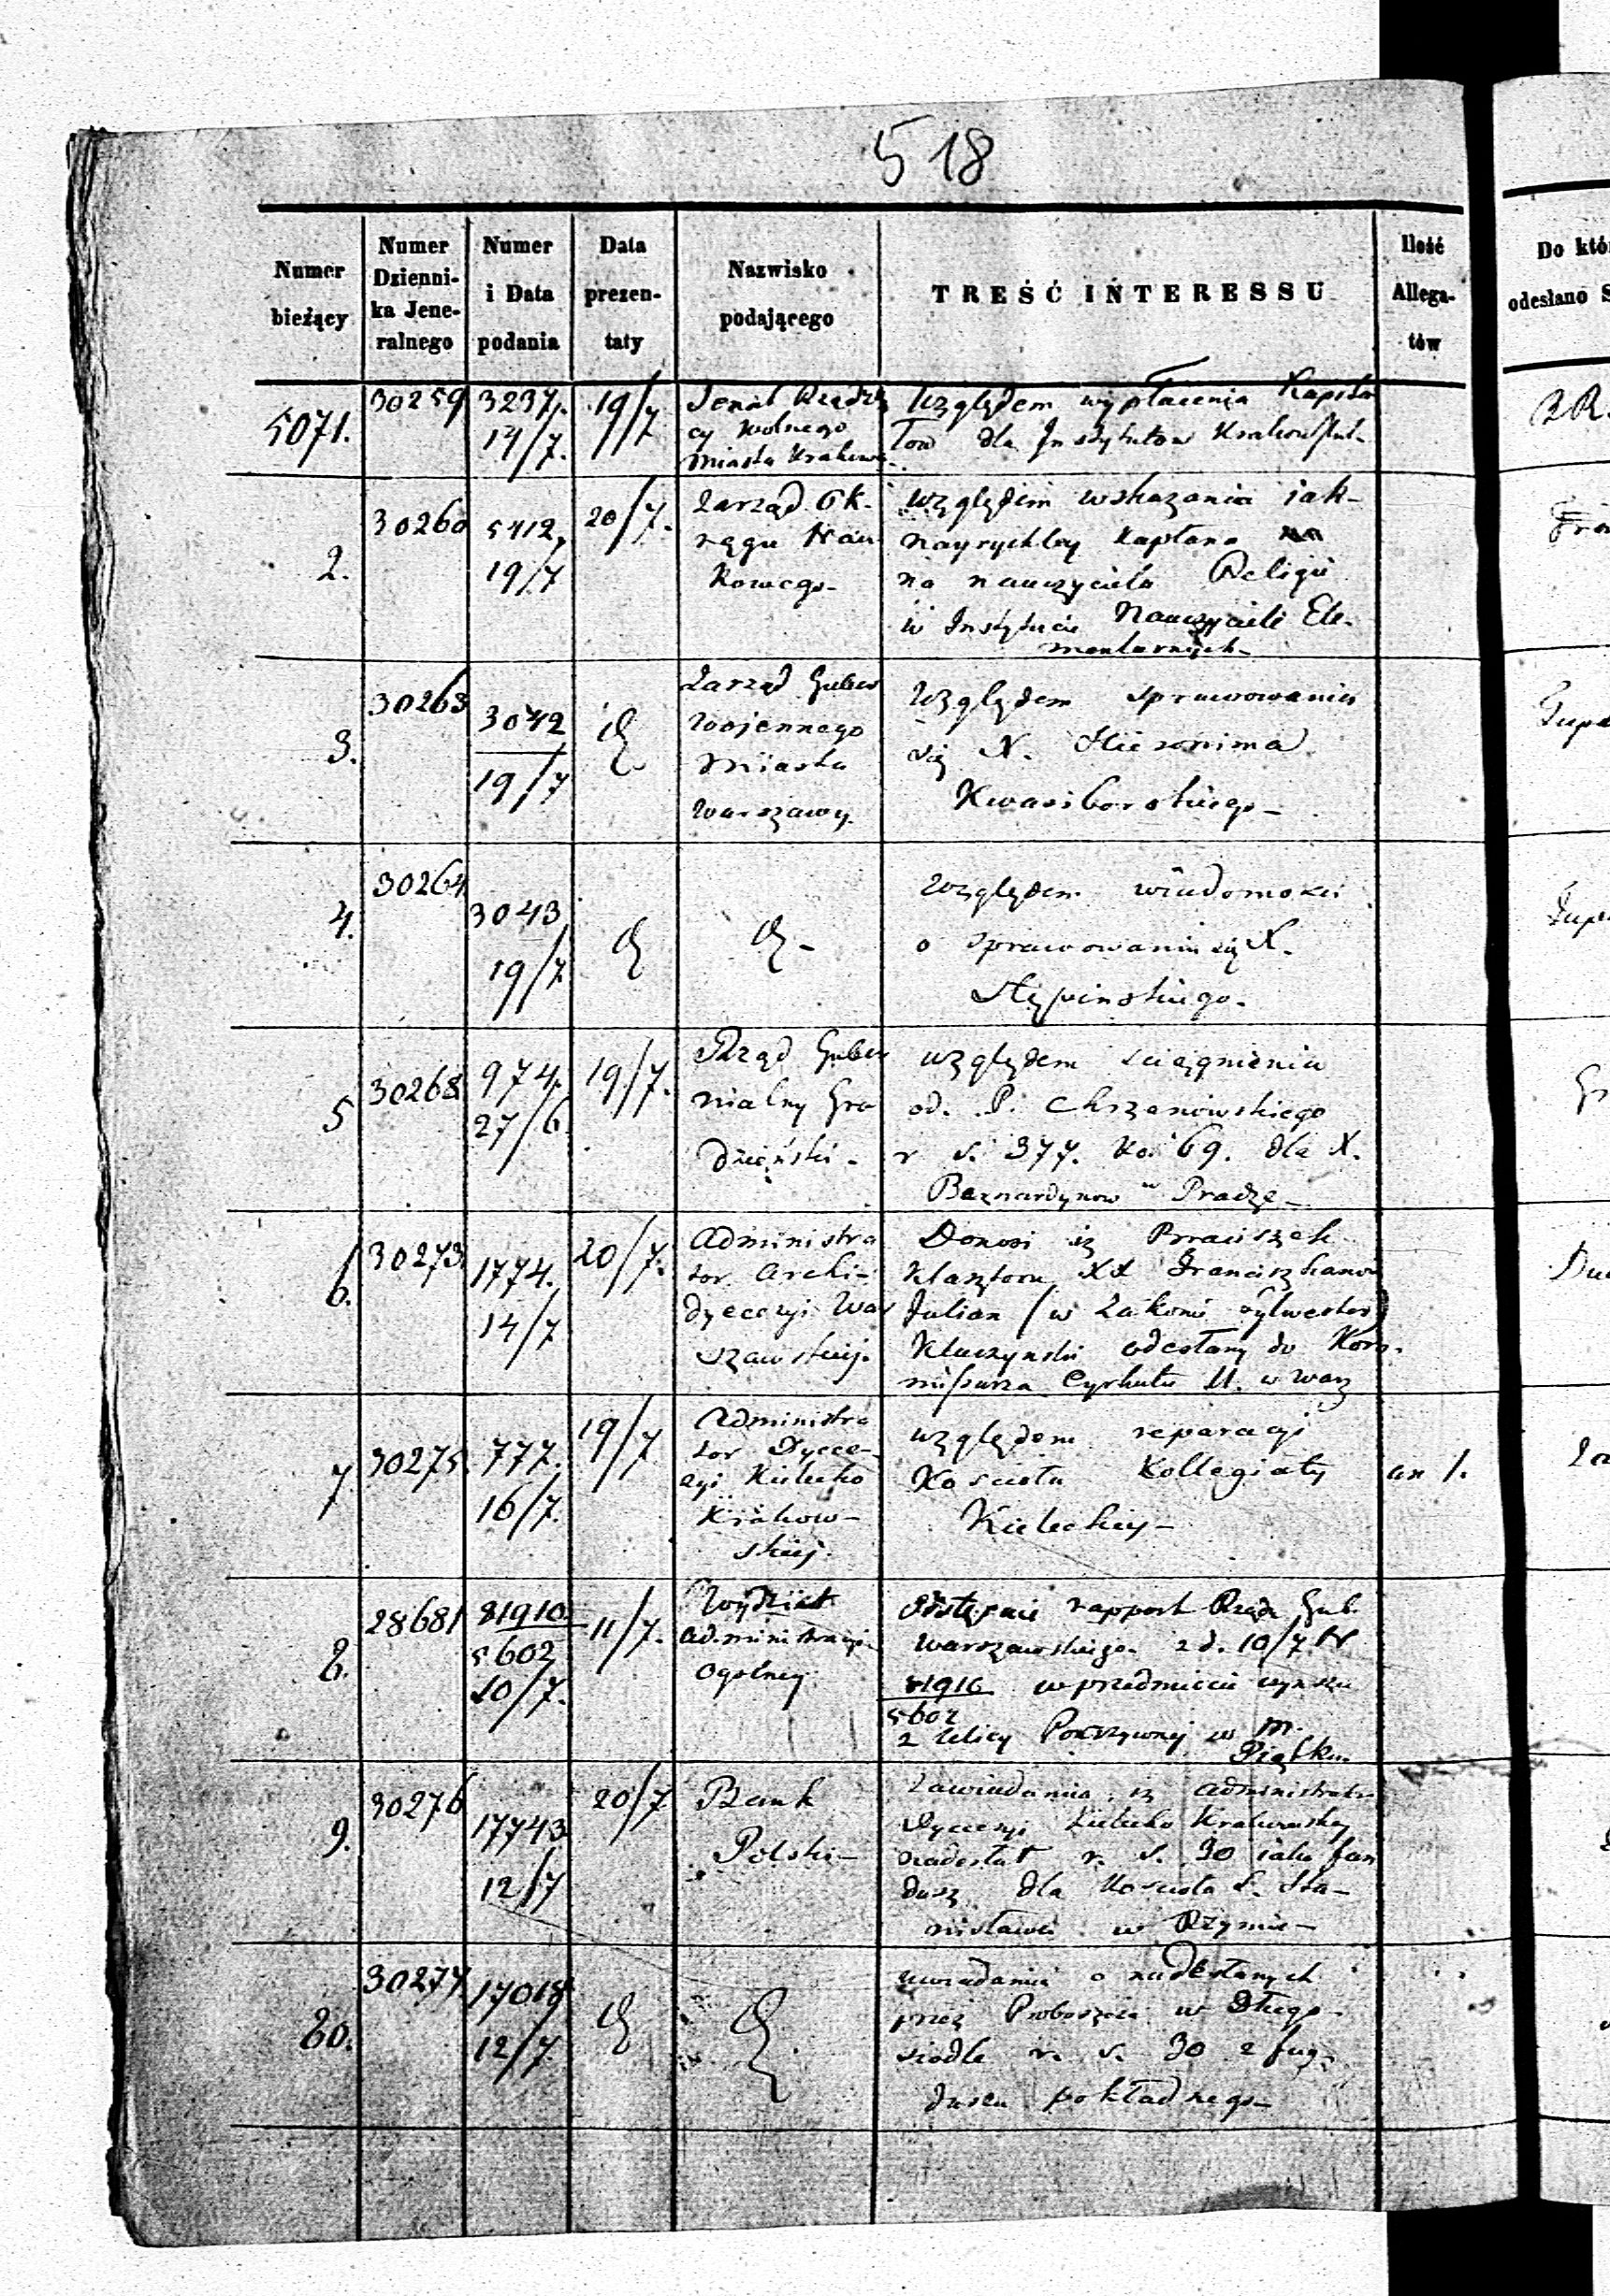 518
Numer
bieżący
Numer
Dzienni-
ka Jene-
ralnego
Numer
i Data
podania
Data
prezen-
taty
Nazwisko
podającego
TREŚĆ INTERESSU
Ilość
Allega-
tów
Do któ
odesłano S
5071.
30259
3237.
14/7.
19/7
Senat Rządzą
cy Wolnego
Miasta Krakowa
Względem wypłacenia Kapita
łow dla Instytutow Krakowskich
2.
30260
5412,
19/7
20/7.
Zarząd Ok-
ręgu Nau
kowego-
Względem wskazania iak-
nayrychley kapłana
na nauczyciela Religii
w Instytucie Nauczycieli Ele-
mentarnych-
3.
30263
3042
19/7
Zarząd Guber
Wojennego
Miasta
Warszawy.
Względem sprawowania
się X. Hieronima
Kwasiborskiego-
4.
30264
3043
19/7
Względem wiadomości
o sprawowaniu się X.
Stępińskiego.
5
30268
974.
27/6.
19/7.
Rząd Guber
nialny Gro
dzieński-
względem sciągnienia
od. P. Chrzanowskiego
r s. 377. ko. 69. dla X.
Bernardynow w Pradze-
6.
30273
1774.
14/7
20/7.
Administra
tor Archi-
dyecezyi War
szawskiej.
Donosi iż
Klasztoru XX Franciszkanow
Julian (w Zakonie Sylwester)
Kluczynski odesłany do Kom-
missarza Cyrkułu II. w Warz
7
30275.
777.
16/7.
19/7
Administra
tor Dyece-
zyi Kielecko
Krakow-
skiej.
względem reparacyi
Koscioła Kollegiaty
Kieleckiey-
an 1.
8.
28681
81910
5602
10/7.
11/7.
Wydział
Administracyi
Ogolney.
rapport Rządu Gub.
Warszawskiego z d. 10/7 N
81916
5602
w przedmiocie
z Ulicy w m.
Piątku.
9.
30276
17743
12/7
20/7
Bank
Polski-
Zawiadamia, iż Administrator
Dyecezyi Kielecko Krakowskiey
nadesłał r. s. 30 iako fun
dusz dla Koscioła S. Sta-
nisława w Rzymie-
80.
30277
17018
12/7.
uwiadamia o nadesłanych
przez Proboszcza w Długo-
siodle r. s. 30 z fun-
duszu pokładnego-